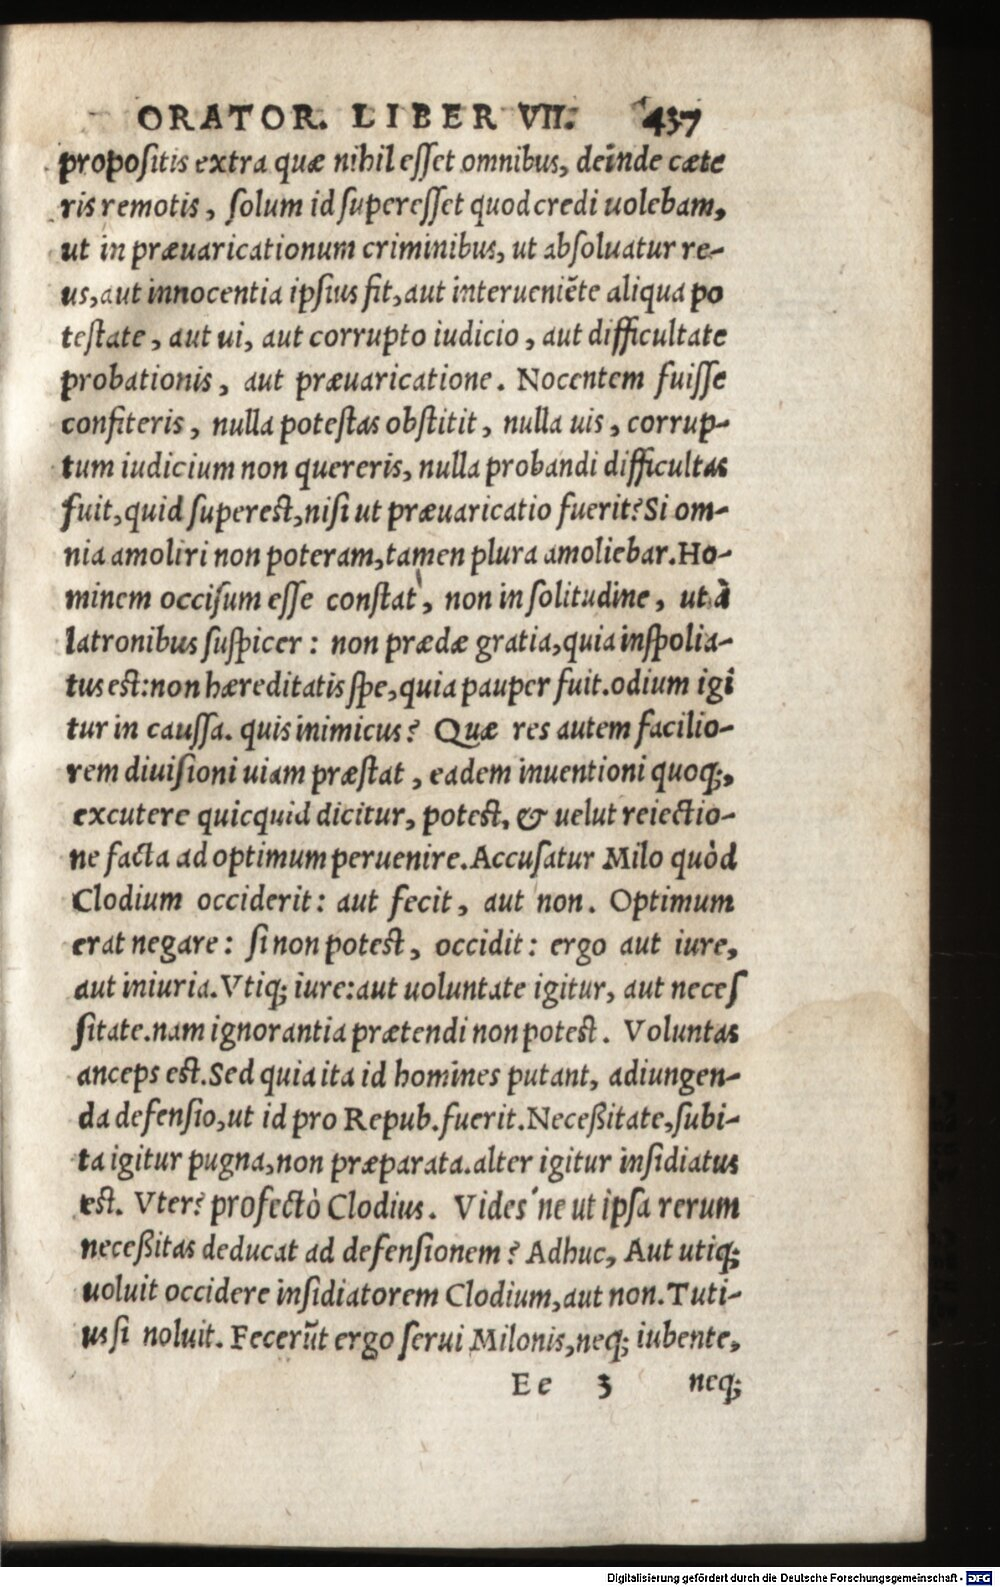 ORATOR. LIBER VII. 437
propositis extra quæ nihil esset omnibus, deinde cæte
ris remotis, solum id superesset quod credi uolebam,
ut in præuaricationum criminibus, ut absoluatur re-
us, aut innocentia ipsius fit, aut interueniẽte aliqua po
testate, aut ui, aut corrupto iudicio, aut difficultate
probationis, aut præuaricatione. Nocentem fuisse
confiteris, nulla potestas obstitit, nulla uis, corrup-
tum iudicium non quereris, nulla probandi difficultas
fuit, quid superest, nisi ut præuaricatio fuerit? Si om-
nia amoliri non poteram, tamen plura amoliebar. Ho-
minem occisum esse constat, non in solitudine, ut à
latronibus suspicer: non prædæ gratia, quia inspolia-
tus est: non hæreditatis spe, quia pauper fuit. odium igi
tur in caussa. quis inimicus? Quæ res autem facilio-
rem diuisioni uiam præstat, eadem inuentioni quoq;,
excutere quicquid dicitur, potest, & uelut reiectio-
ne facta ad optimum peruenire. Accusatur Milo quòd
Clodium occiderit: aut fecit, aut non. Optimum
erat negare: si non potest, occidit: ergo aut iure,
aut iniuria. Vtiq; iure: aut uoluntate igitur, aut neces
sitate. nam ignorantia prætendi non potest. Voluntas
anceps est. Sed quia ita id homines putant, adiungen-
da defensio, ut id pro Repub. fuerit. Neceßitate, subi-
ta igitur pugna, non præparata. alter igitur insidiatus
est. Vter? profectò Clodius. Vides'ne ut ipsa rerum
neceßitas deducat ad defensionem? Adhuc, Aut utiq;
uoluit occidere insidiatorem Clodium, aut non. Tuti-
us si noluit. Fecerũt ergo serui Milonis, neq; iubente,
Ee 3 neq;
Digitalisierung gefördert durch die Deutsche Forschungsgemeinschaft - DFG